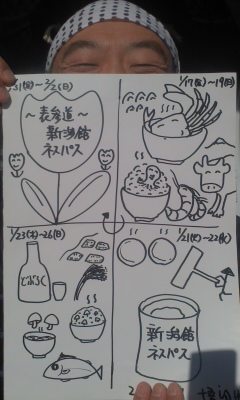 ~2/2(日)
~表参道~
新潟館
ネスパス
1/17(金)~19(日)
1/23(木)~26(日)
どぶろく
1/21(火)~22(水)
新潟館
ネスパス